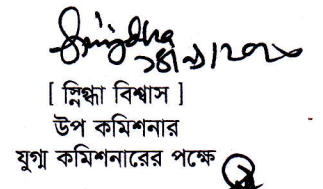 Snigdha
[ স্নিগ্ধা বিশ্বাস ]
উপ কমিশনার
যুগ্ম কমিশনারের পক্ষে